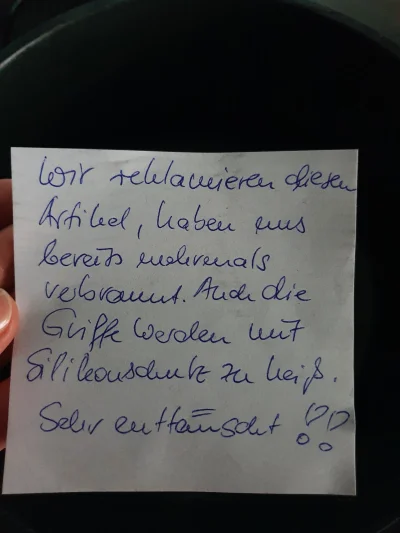 Wir reklamieren diesen
Artikel, haben uns
bereits mehrmals
verbrannt. Auch die
Griffe werden mit
Silikonschutz zu heiß.
Sehr enttäuscht !!